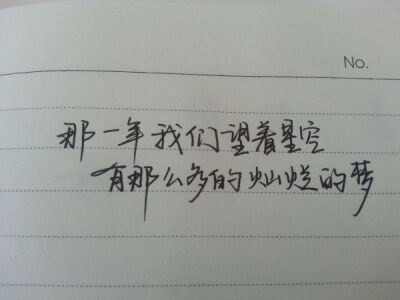 No.
那一年我们望着星空
有那么多的灿烂的梦